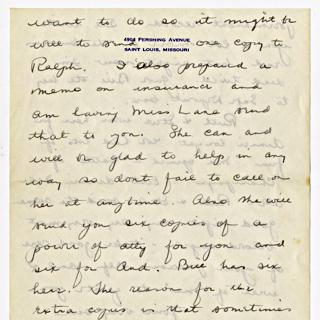 want to do so it might be
4904 PERSHING AVENUE
SAINT LOUIS, MISSOURI
well to send one copy to
Ralph. I also prepared a
memo on insurance and
am having Miss Lane send
that to you. She can and
will be glad to help in any
way so dont fail to call on
her at anytime. Also she will
send you six copies of a
power of atty for you and
six for And. Bill has six
here. The reason for the
extra copies is that sometimes